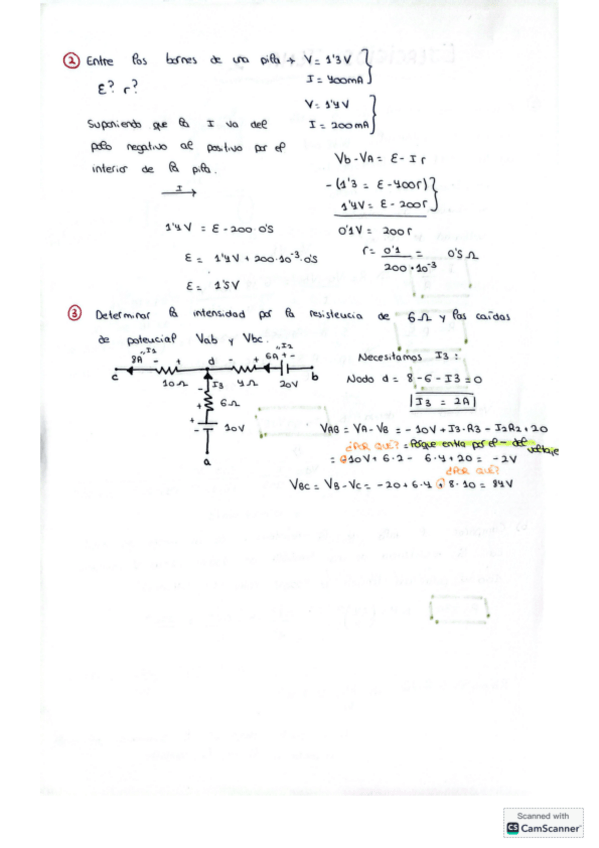 ② Entre los bornes de una pila → V = 1'3 V
I = 400mA
E? r?
V = 1'4 V
I = 200mA
Suponiendo que la I va del
polo negativo al positivo por el
interior de la pila.
I
Vb - VA = E - I r
- (1'3 = E - 400r)
1'4V = E - 200r
0'1V = 200r
r = 0'1 / 200·10⁻³ = 0'5 Ω
1'4 V = E - 200·0'5
E = 1'4 V + 200·10⁻³·0'5
E = 1'5 V
③ Determinar la intensidad por la resistencia de 6Ω y las caídas
de potencial Vab y Vbc.
8A "I1 - + d - + 6A "I2 + -
c 10Ω I3 4Ω 20V b
+ 6Ω
-
+
- 10V
a
Necesitamos I3:
Nodo d = 8 - 6 - I3 = 0
I3 = 2A
VAB = VA - VB = -10V + I3·R3 - I2R2 + 20
¿POR QUÉ? = Porque entra por el - del voltaje
= -10V + 6·2 - 6·4 + 20 = -2V
¿POR QUÉ?
VBC = VB - VC = -20 + 6·4 + 8·10 = 84V
Scanned with
CS CamScanner